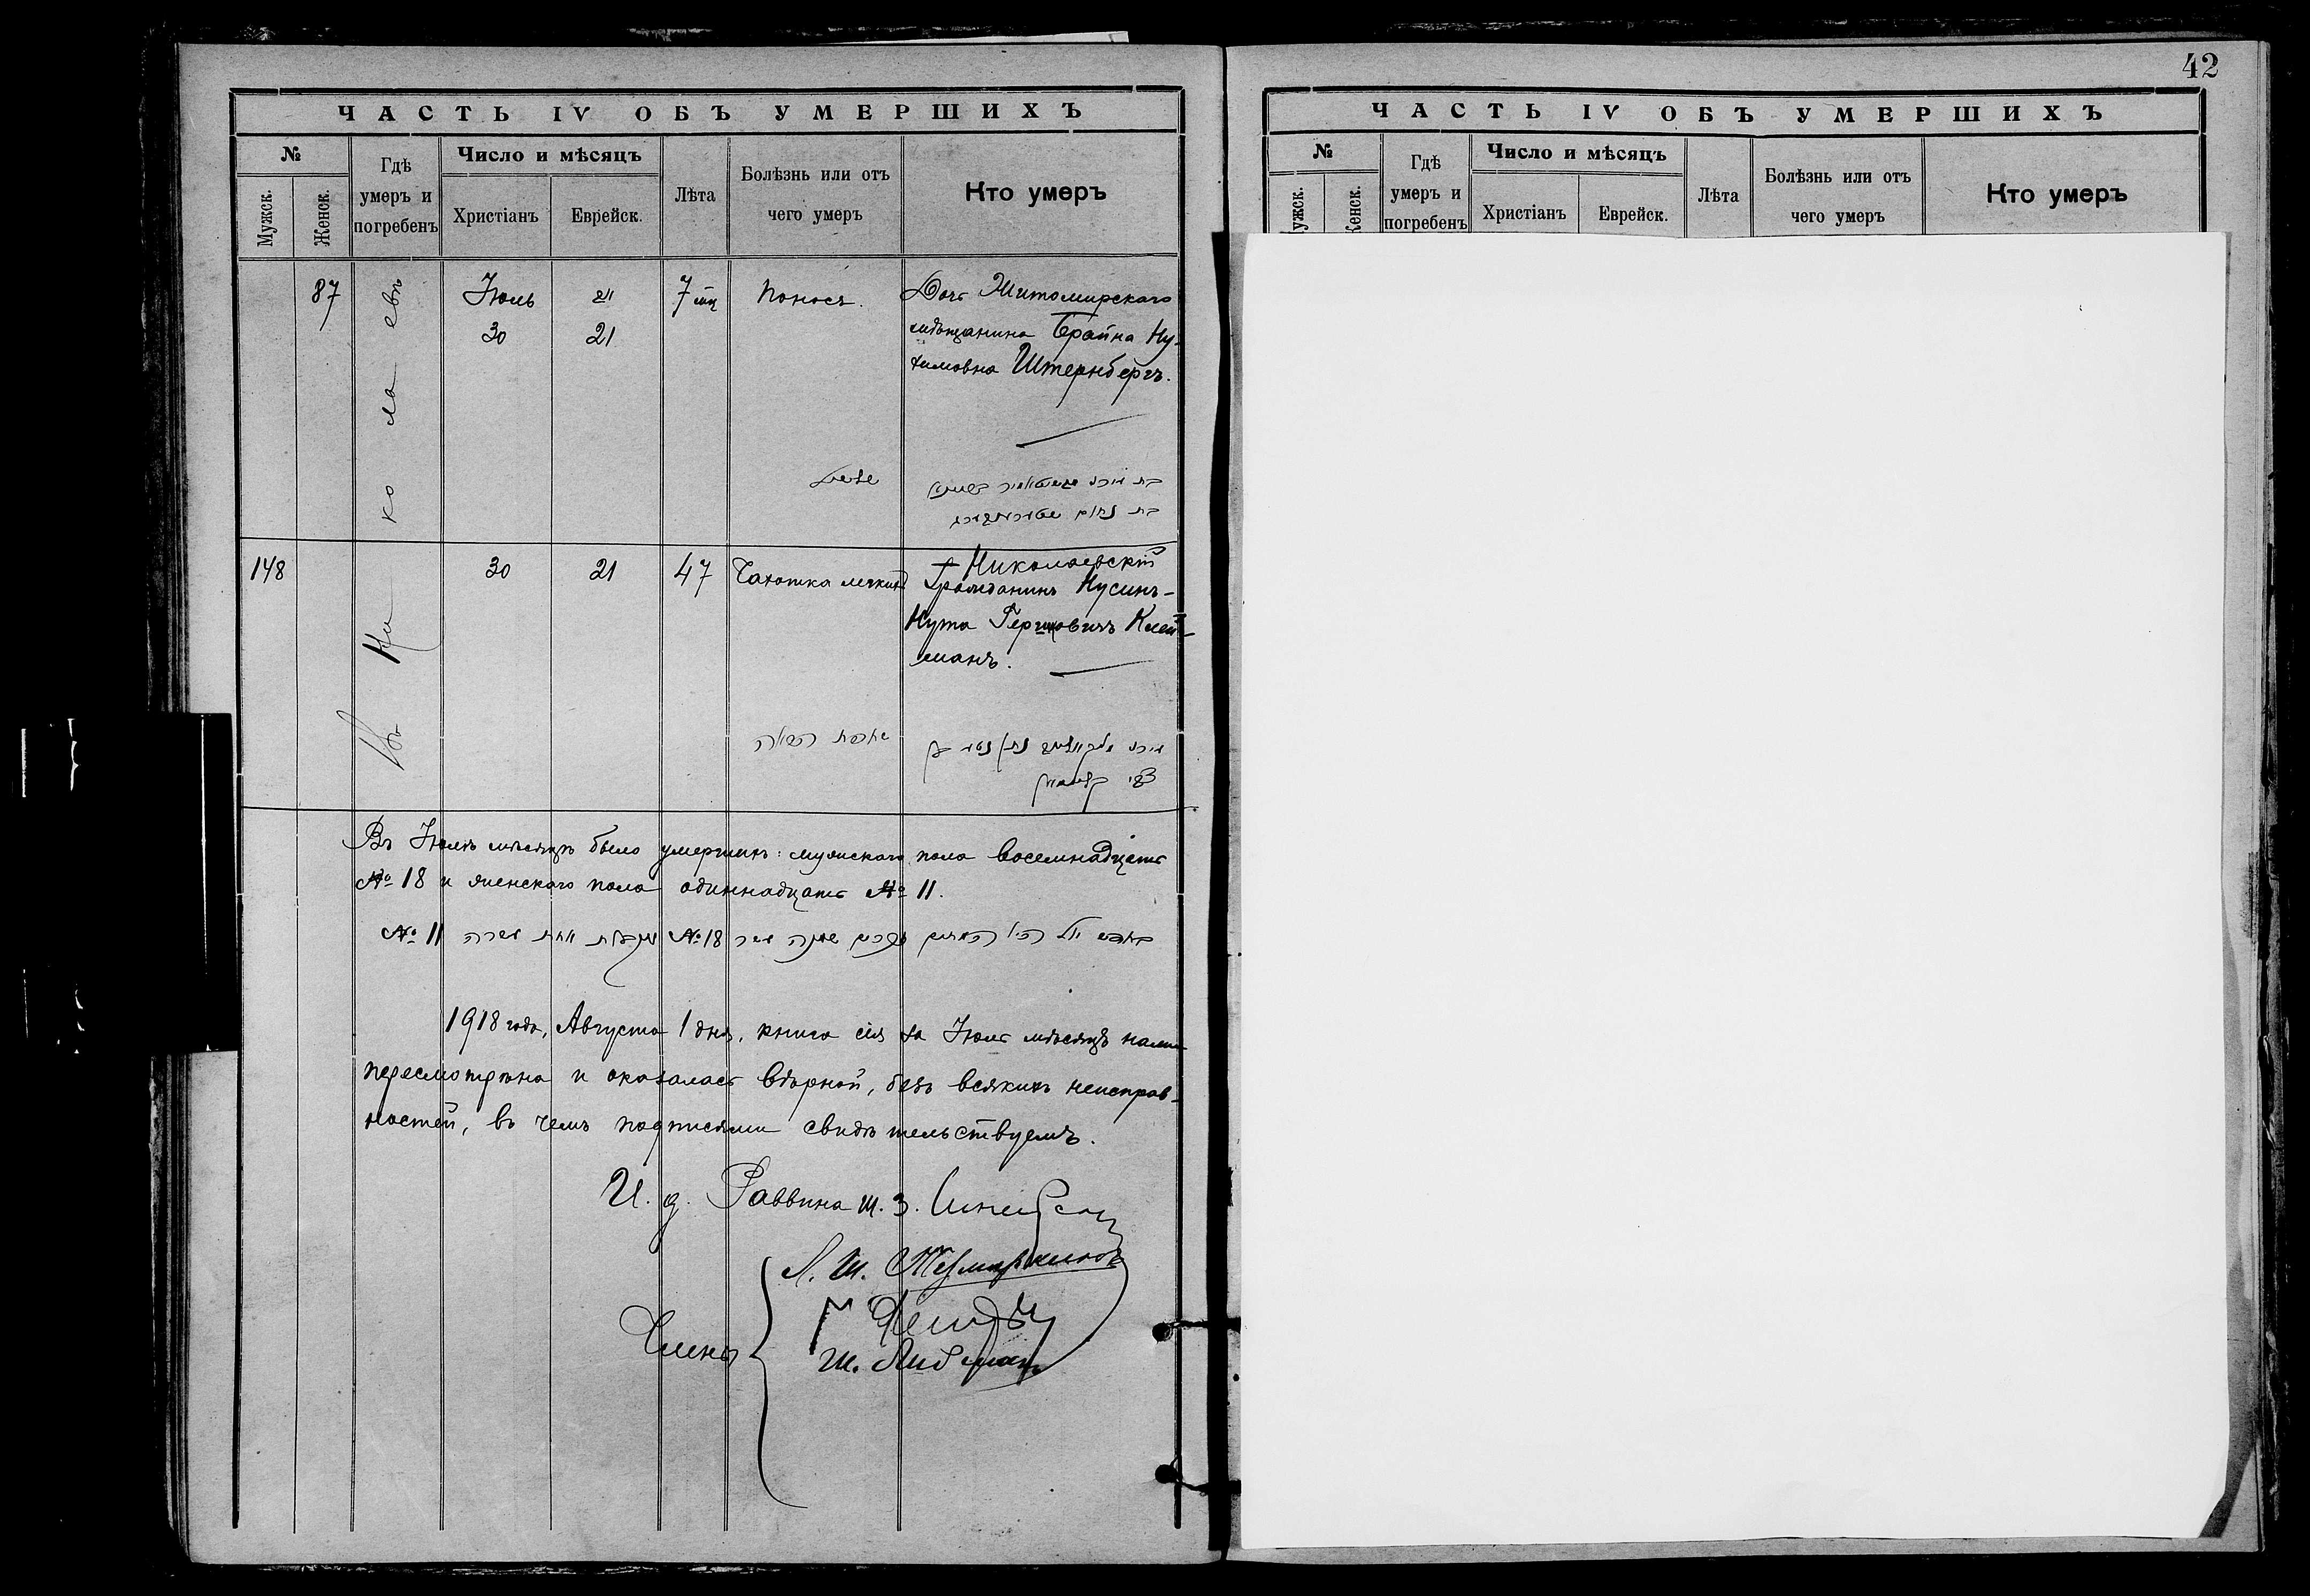 42
ЧАСТЬ IV ОБЪ УМЕРШИХЪ
№
Мужск.
Женск.
Гдѣ
умеръ и
погребенъ
Число и мѣсяцъ
Христіанъ
Еврейск.
Лѣта
Болѣзнь или отъ
чего умеръ
Кто умеръ
Въ Николаевѣ
87
Іюль
30
אב
21
7 мц
Поносъ.
Дочь Житомирскаго
мѣщанина Брайна Ну-
химовна Штернбергъ.
שלשול
148
30
21
47
Чахотка легкихъ
Николаевскій
Гражданинъ Нусинъ-
Нута Гершковичъ Клей-
манъ.
שחפת הריאה
צבי קליימאן
Въ Іюлѣ мѣсяцѣ было умершихъ: мужскаго пола восемнадцать
№ 18 и женскаго пола одиннадцать № 11.
בחודש יולי היו המתים זכרים שמנה עשר № 18 ונקבות אחת עשרה № 11
1918 года, Августа 1 дня, книга сія за Іюль мѣсяцъ нами
пересмотрѣна и оказалась вѣрной, безъ всякихъ неисправ-
ностей, въ чемъ подписями свидѣтельствуемъ.
И. д. Раввина Ш. З.
Л. Ш.
Члены
Ш. Либманъ
ЧАСТЬ IV ОБЪ УМЕРШИХЪ
№
ужск.
Кенск.
Гдѣ
умеръ и
погребенъ
Число и мѣсяцъ
Христіанъ
Еврейск.
Лѣта
Болѣзнь или отъ
чего умеръ
Кто умеръ